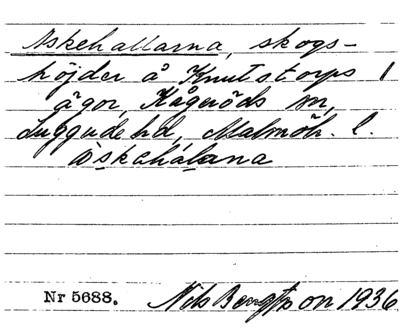 Askehallarna, skogs-
höjder å Knutstorps 1
ägor, Kågeröds sn,
Luggude hd, Malmöh. l.
åskehálana
Nr 5688. Nils Bengtsson 1936